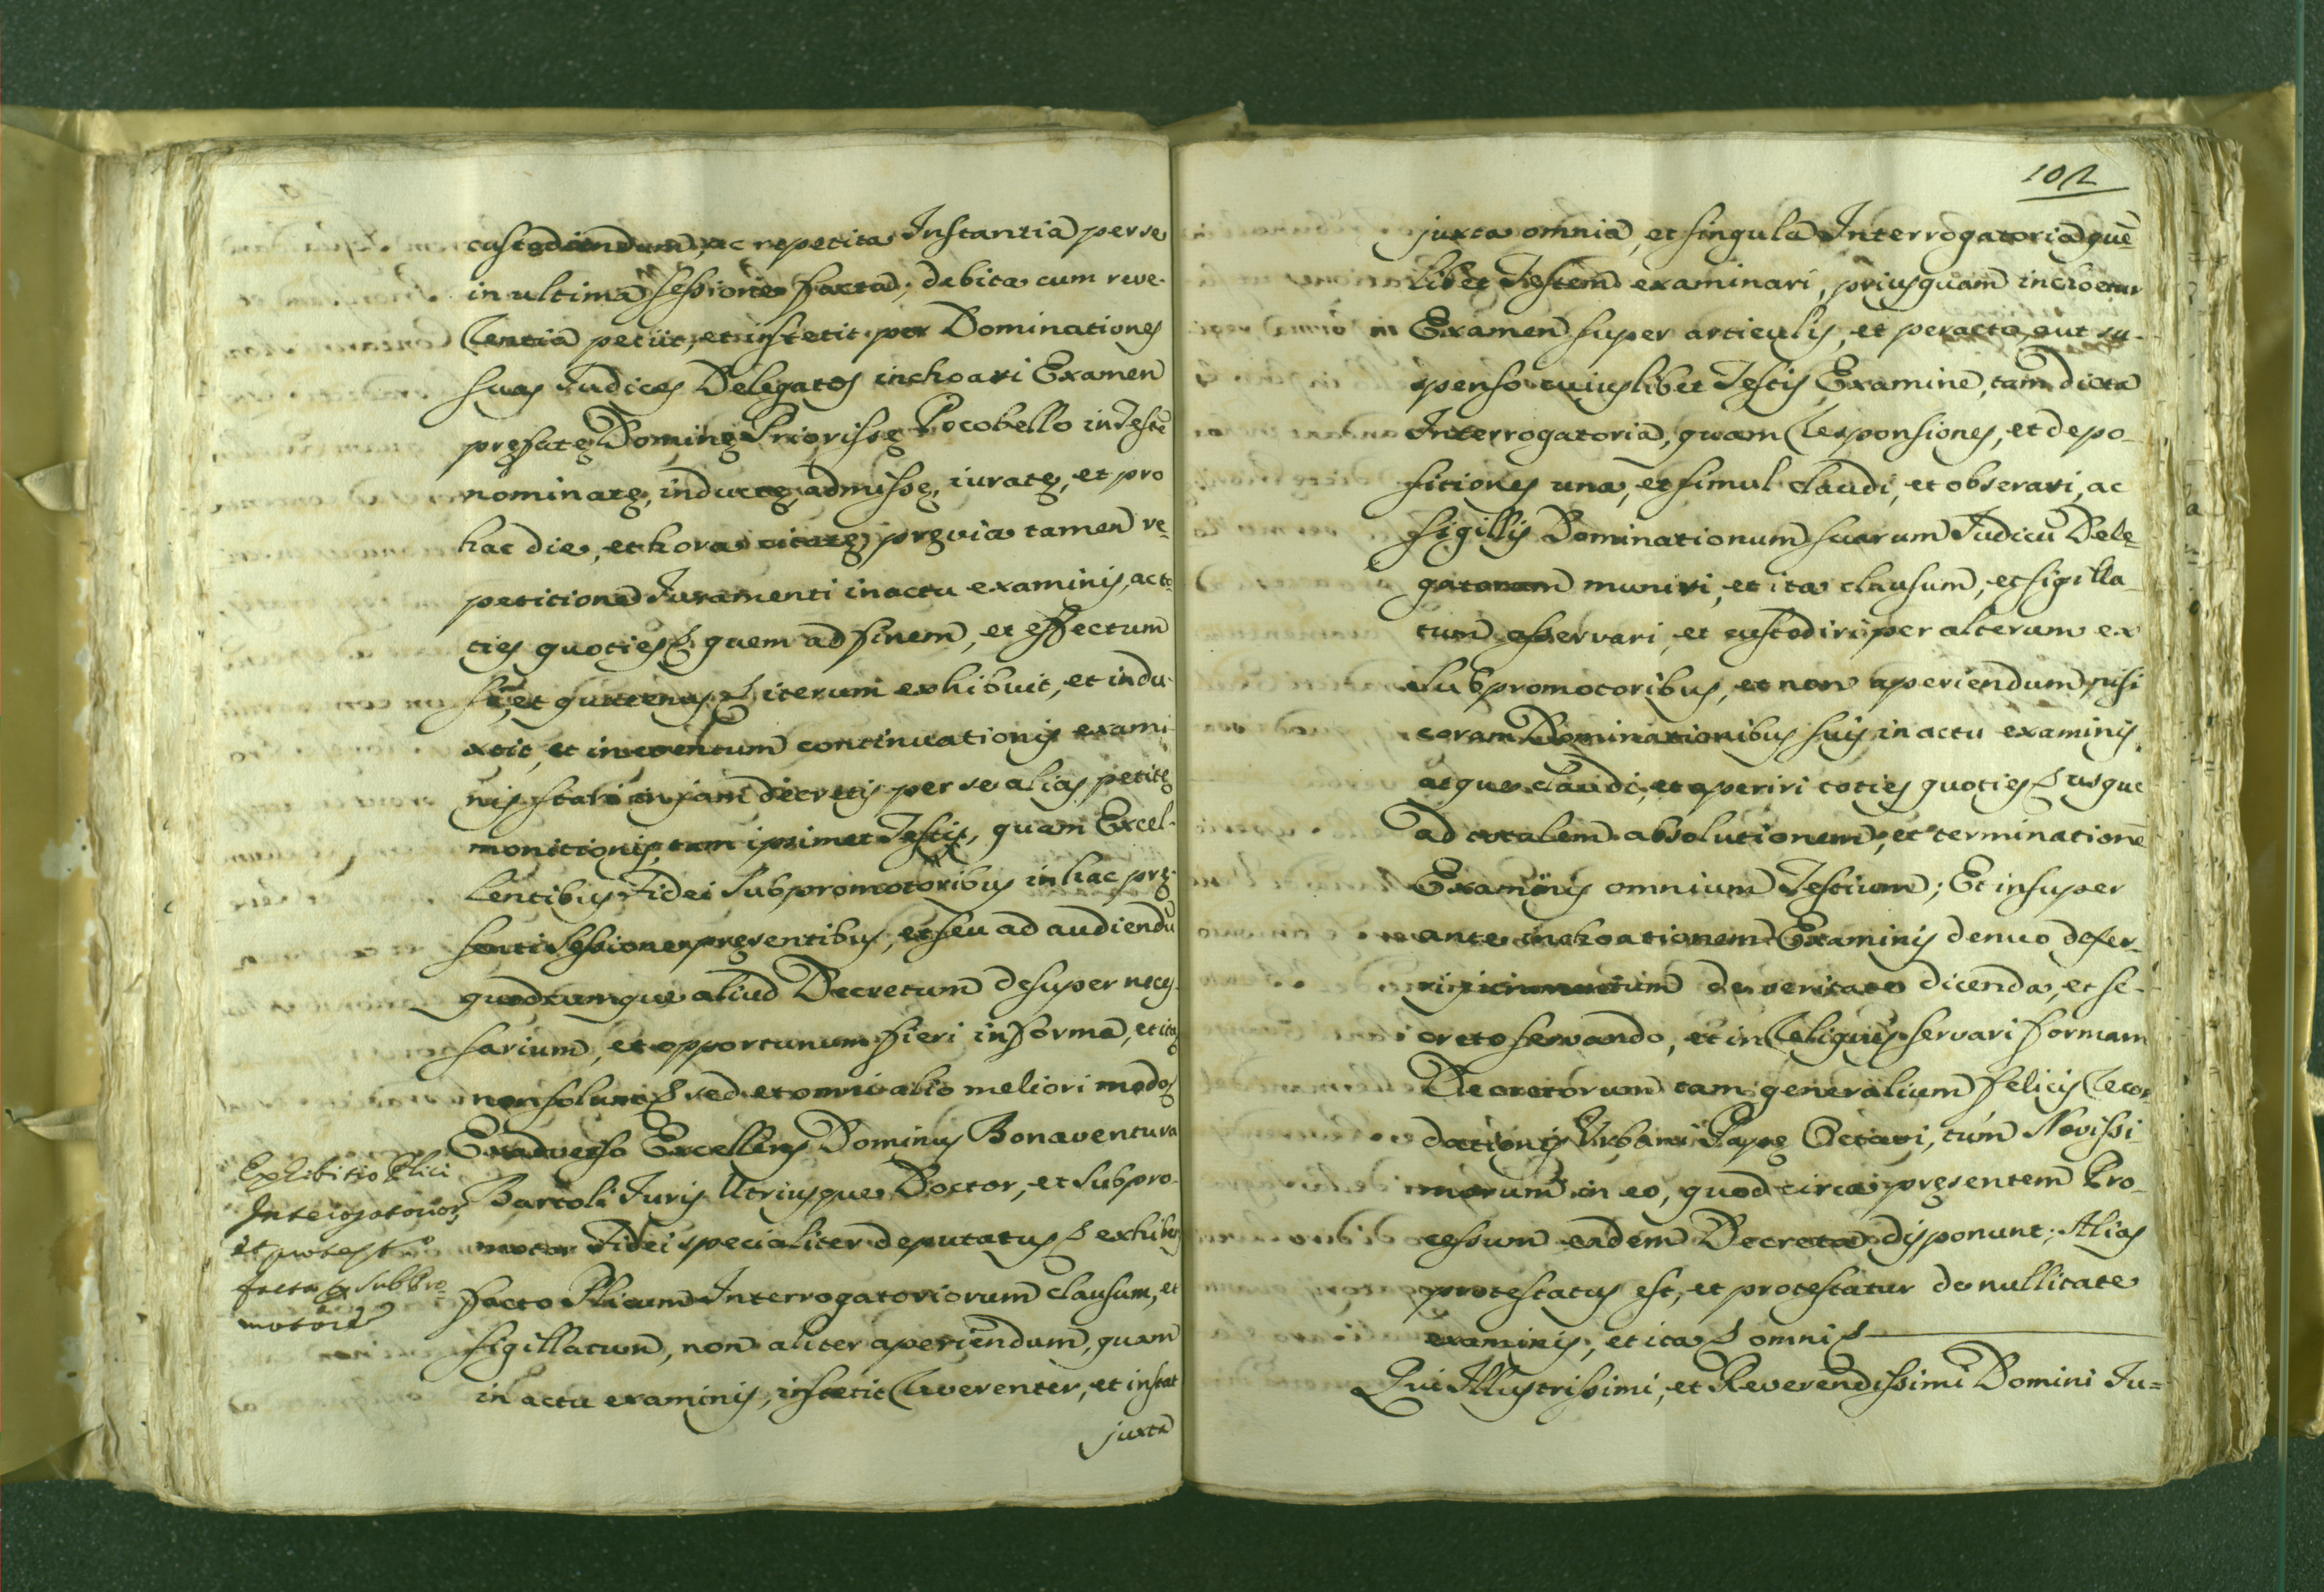 custodiendum, ac repetita Instantia per se
in ultima sessione facta, debita cum reve-
rentia petiit, et institit per Dominationes
suas Judices Delegatos inchoari Examen
prefate Domine Priorisse Pocobello in Teste
nominate, inducte, admisse, iurate, et pro
hac die, et hora citate, previa tamen re-
petitione Juramenti in actu examinis, ac to-
ties quoties &. quem ad finem, et effectum
si, et quatenus & iterum exhibuit, et indu-
xit, et in eventum continuationis exami-
nis stari in jam decretis per se alias petite
monitionis, tam ipsimet Testis, quam Excel-
lentibus Fidei Subpromotoribus in hac pre-
senti sessione presentibus, et seu ad audiendu
quodcumque aliud Decretum desuper neces-
sarium, et opportunum fieri in forma, et ita
non solum & sed et omni alio meliori modo
Ex adverso Excellens Dominus Bonaventura
Bartoli Juris Utriusque Doctor, et Subpro-
motor Fidei specialiter deputatus & exhibito
facto Plicum Interrogatoriorum clausum, et
sigillatum, non aliter aperiendum, quam
in actu examinis, institit reverenter, et instat
juxta
Exhibitio Plici
Interrogatorior
et protest.
facta a Subpro-
motore
102
juxta omnia, et singula Interrogatoria que-
libet Testem examinari, priusquam inchoetur
Examen super articulis, et peracto, aut su-
spenso cuiuslibet Testis Examine, tam dicta
Interrogatoria, quam responsiones, et depo-
sitiones una, et simul claudi, et obserari, ac
sigillis Dominationum suarum Judicu Dele-
gatorum muniri, et ita clausum, et sigilla-
tum asservari, et custodiri per alterum ex
Subpromotoribus, et non aperiendum, nisi
coram Dominationibus suis in actu examinis
atque claudi, et aperiri toties quoties & usque
ad totalem absolutionem, et terminatione
Examinis omnium Testium; Et insuper
ante inchoationem Examinis denuo defer-
ri juramentum de veritate dicenda, et se-
creto servando, et in reliquis servari formam
Decretorum tam generalium felicis recor-
dationis Urbani Pape Octavi, tum Novissi
morum in eo, quod circa presentem Pro-
cessum eadem Decreta disponunt; Alias
protestatus est, et protestatur de nullitate
examinis; et ita & omni &
Qui Illustrissimi, et Reverendissimi Domini Ju=